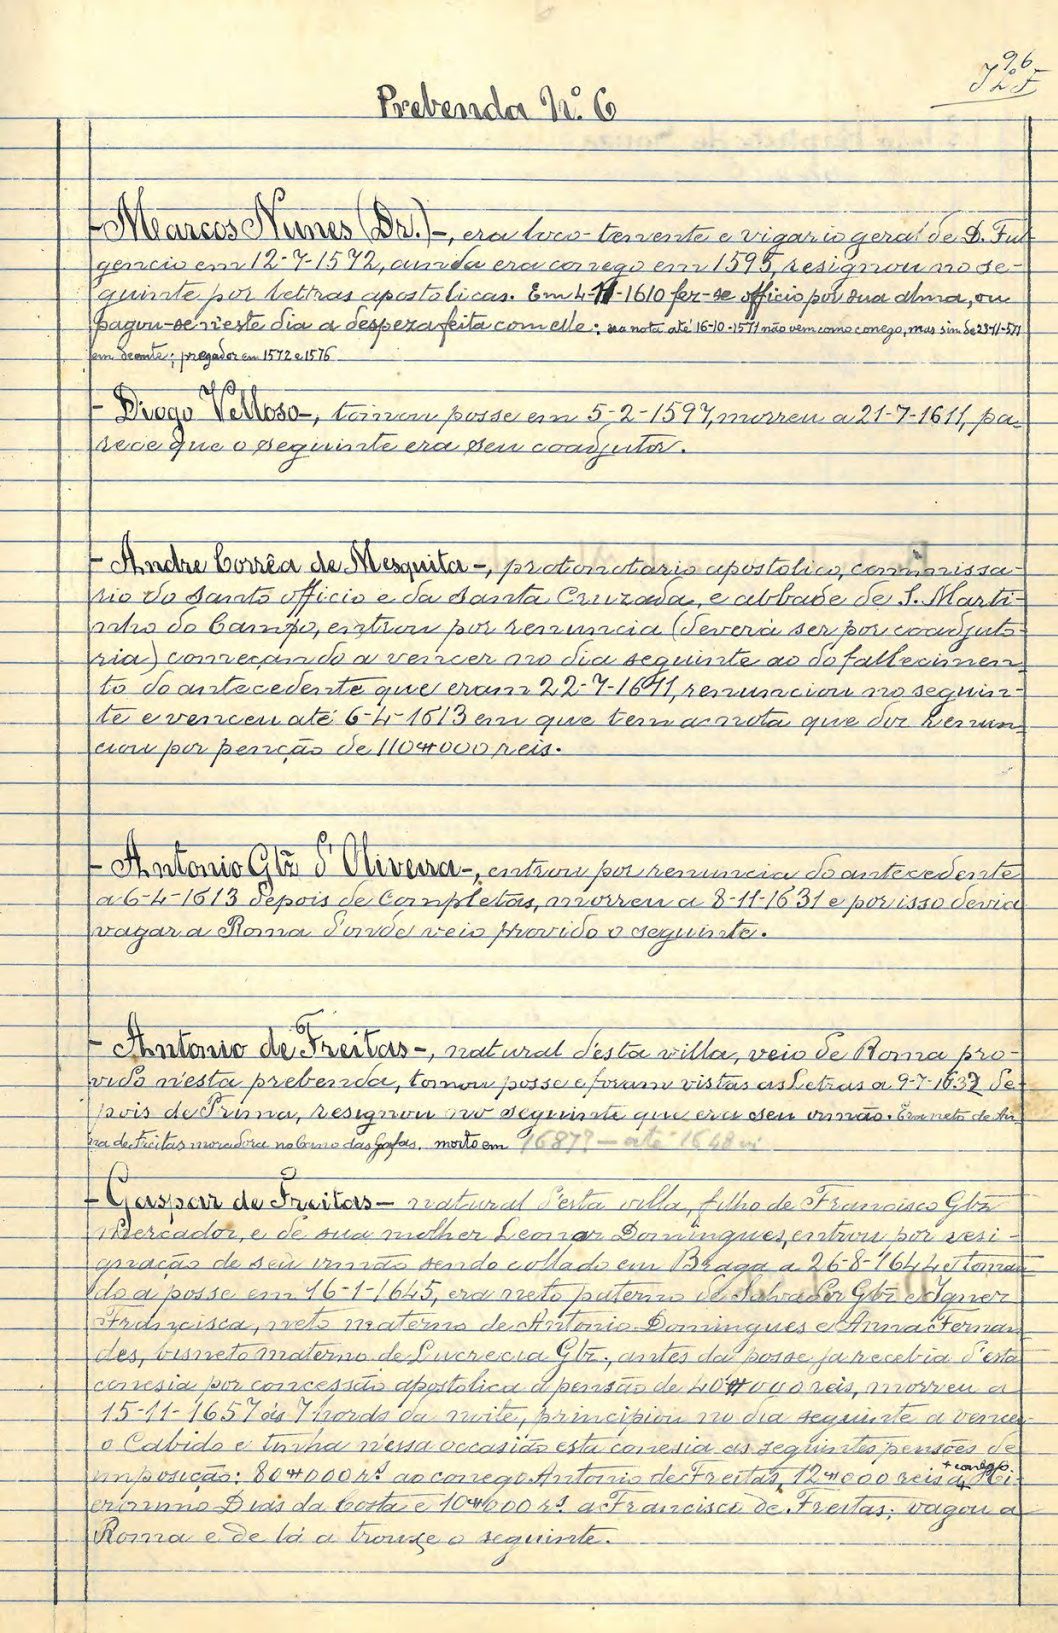 96
Prebenda Nº. 6
- Marcos Nunes (Dr.) -, era loco-tenente e vigario geral de D. Ful
gencio em 12-7-1572, ainda era conego em 1595, resignou no se-
guinte por lettras apostolicas. Em 4-11-1610 fez-se officio por sua alma, ou
pagou-se n'este dia a despeza feita com elle; na nota até 16-10-1571 não vem como conego, mas sim de 23-11-571
em deante; pregador em 1572 e 1576
- Diogo Velloso -, tomou posse em 5-2-1597, morreu a 21-7-1611, pa-
rece que o seguinte era seu coadjutor.
- Andre Corrêa de Mesquita -, protonotario apostolico, commissa-
rio do santo officio e da santa Cruzada, e abbade de S. Marti-
nho do Campo, entrou por renuncia (deverá ser por coadjuto-
ria) começando a vencer no dia seguinte ao do fallecimen-
to do antecedente que eram 22-7-1611, renunciou no seguin-
te e venceu até 6-4-1613 em que tem a nota que diz renun-
ciou por penção de 110#000 reis.
- Antonio Glz̃ d'Oliveira -, entrou por renuncia do antecedente
a 6-4-1613 depois de Completas, morreu a 8-11-1631 e por isso devia
vagar a Roma d'onde veio provido o seguinte.
- Antonio de Freitas -, natural d'esta villa, veio de Roma pro-
vido n'esta prebenda, tomou posse e foram vistas as Letras a 9-7-1632 de-
pois de Prima, resignou no seguinte que era seu irmão. Era neto de An-
na de Freitas moradora no Cano das Gafas. morto em 1687? — até 1648
- Gaspar de Freitas - natural d'esta villa, filho de Francisco Glz̃
mercador, e de sua molher Leonor Domingues, entrou por resi-
gnação de seu irmão sendo collado em Braga a 26-8-1644 e toman-
do a posse em 16-1-1645, era neto paterno de Salvador Glz̃ e Ignez
Francisca, neto materno de Antonio Domingues e Anna Fernan-
des, bisneto materno de Lucrecia Glz̃., antes da posse ja recebia d'esta
conesia por concessão apostolica a pensão de 40#000 reis, morreu a
15-11-1657 ás 7 horas da noite, principiou no dia seguinte a vencer
o Cabido e tinha n'essa occasião esta conesia as seguintes pensões de
imposição: 80#000 rs. ao conego Antonio de Freitas, 12#000 reis a + conego Hi-
eronimo Dias da Costa e 10#000 rs. a Francisco de Freitas; vagou a
Roma e de lá a trouxe o seguinte.